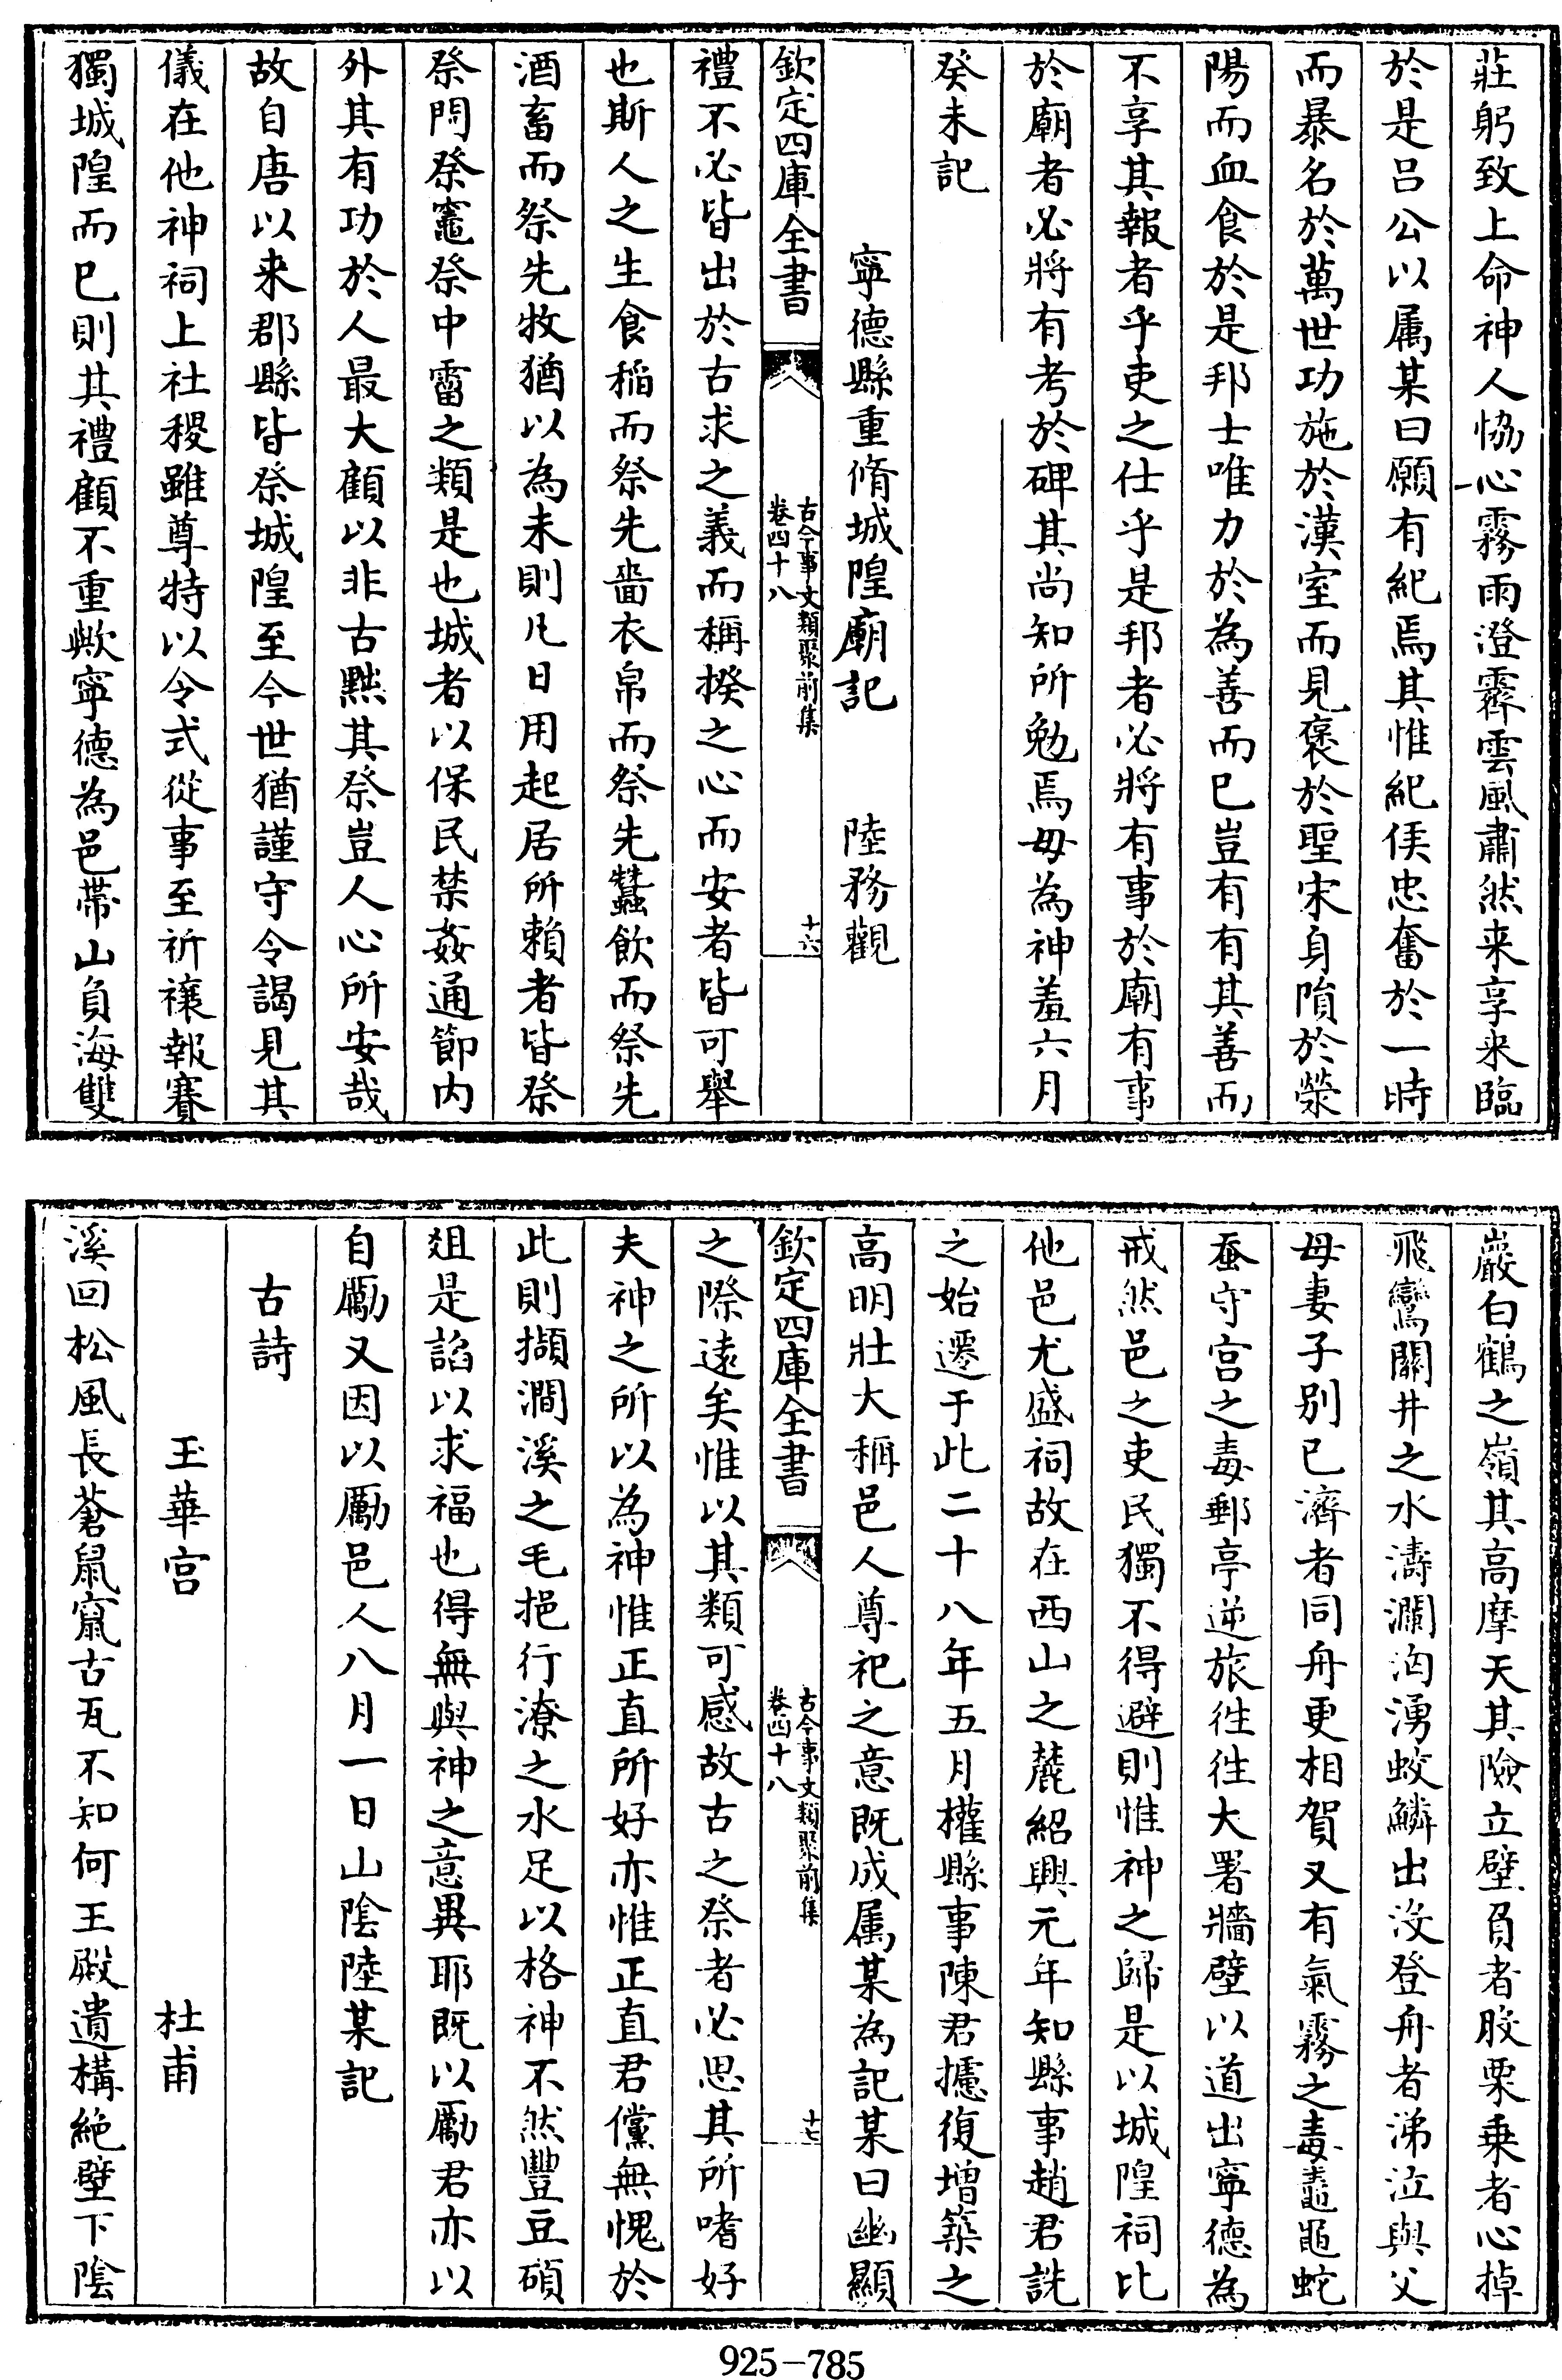 莊躬致上命神人恊心霧雨澄霽雲風肅然来享来臨
於是呂公以属某曰願有紀焉其惟紀侯忠奮於一時
而暴名於萬世功施於漢室而見褒於聖宋身隕於滎
陽而血食於是邦士唯力於為善而已豈有有其善而
不享其報者乎吏之仕乎是邦者必將有事於廟有事
於廟者必將有考於碑其尚知所勉焉毋為神羞六月
癸未記
寧德縣重脩城隍廟記 陸務觀
欽定四庫全書 古今事文類聚前集 卷四十八 十六
禮不必皆出於古求之義而稱揆之心而安者皆可舉
也斯人之生食稻而祭先嗇衣帛而祭先蠶飲而祭先
酒畜而祭先牧猶以為未則凡日用起居所賴者皆祭
祭門祭竈祭中霤之類是也城者以保民禁姦通節内
外其有功於人最大顧以非古黜其祭豈人心所安哉
故自唐以来郡縣皆祭城隍至今世猶謹守令謁見其
儀在他神祠上社稷雖尊特以令式從事至祈禳報賽
獨城隍而已則其禮顧不重歟寧德為邑帶山負海雙
巖白鶴之嶺其高摩天其險立壁負者股栗乗者心掉
飛鸞關井之水濤瀾洶湧蛟鱗出没登舟者涕泣與父
母妻子别已濟者同舟更相賀又有氣霧之毒鼃黽蛇
蚕守宫之毒郵亭逆旅往往大署牆壁以道出寧德為
戒然邑之吏民獨不得避則惟神之歸是以城隍祠比
他邑尤盛祠故在西山之麓紹興元年知縣事趙君詵
之始遷于此二十八年五月權縣事陳君攄復增築之
高明壯大稱邑人尊祀之意既成属某為記某曰幽顯
欽定四庫全書 古今事文類聚前集 卷四十八 十七
之際遠矣惟以其類可感故古之祭者必思其所嗜好
夫神之所以為神惟正直所好亦惟正直君儻無愧於
此則擷澗溪之毛挹行潦之水足以格神不然豐豆碩
俎是諂以求福也得無與神之意異耶既以勵君亦以
自勵又因以勵邑人八月一日山陰陸某記
古詩
玉華宫 杜甫
溪回松風長蒼鼠竄古瓦不知何王殿遺構絶壁下陰
925-785